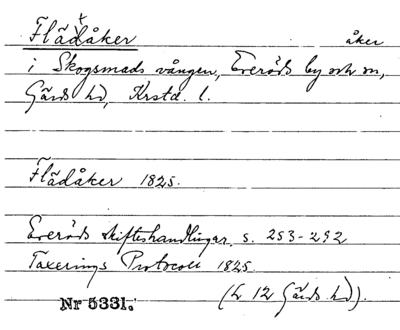 Flädåker åker
i Skogsmads vången, Everöds by och sn,
Gärds hd, Krstd. l.
Flädåker 1825.
Everöds skifteshandlingar s. 253-292
Taxerings Protocoll 1825.
(L 12 Gärds hd).
Nr 5331.